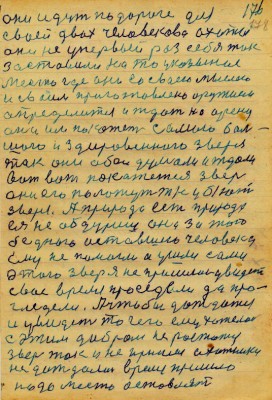 176
они идут по дороге для
своей двух человекова охотки
они не упервый раз себя так
заставили на то указание
место где они со своею мыслию
и своим приготовлено оружия
определится и ждат на арену
она им покажет самого бол
шого и здоровенного зверя
так они оба думали и ждали
вот вот покажется зверь
они его положут так и б/ют
зверя. А природа есть природа
ея не обдуриш она за того
бедного оставшего человека
ему не помогли а ушли сами
этого зверя не пришлось увидеть
свое время проседели да про
глядели. А чтобы дождати
и увидеть то чего ему хотелос
с этим добром не
зверь так и не пришел охотники
не дождалис время пришло
надо место оставлят